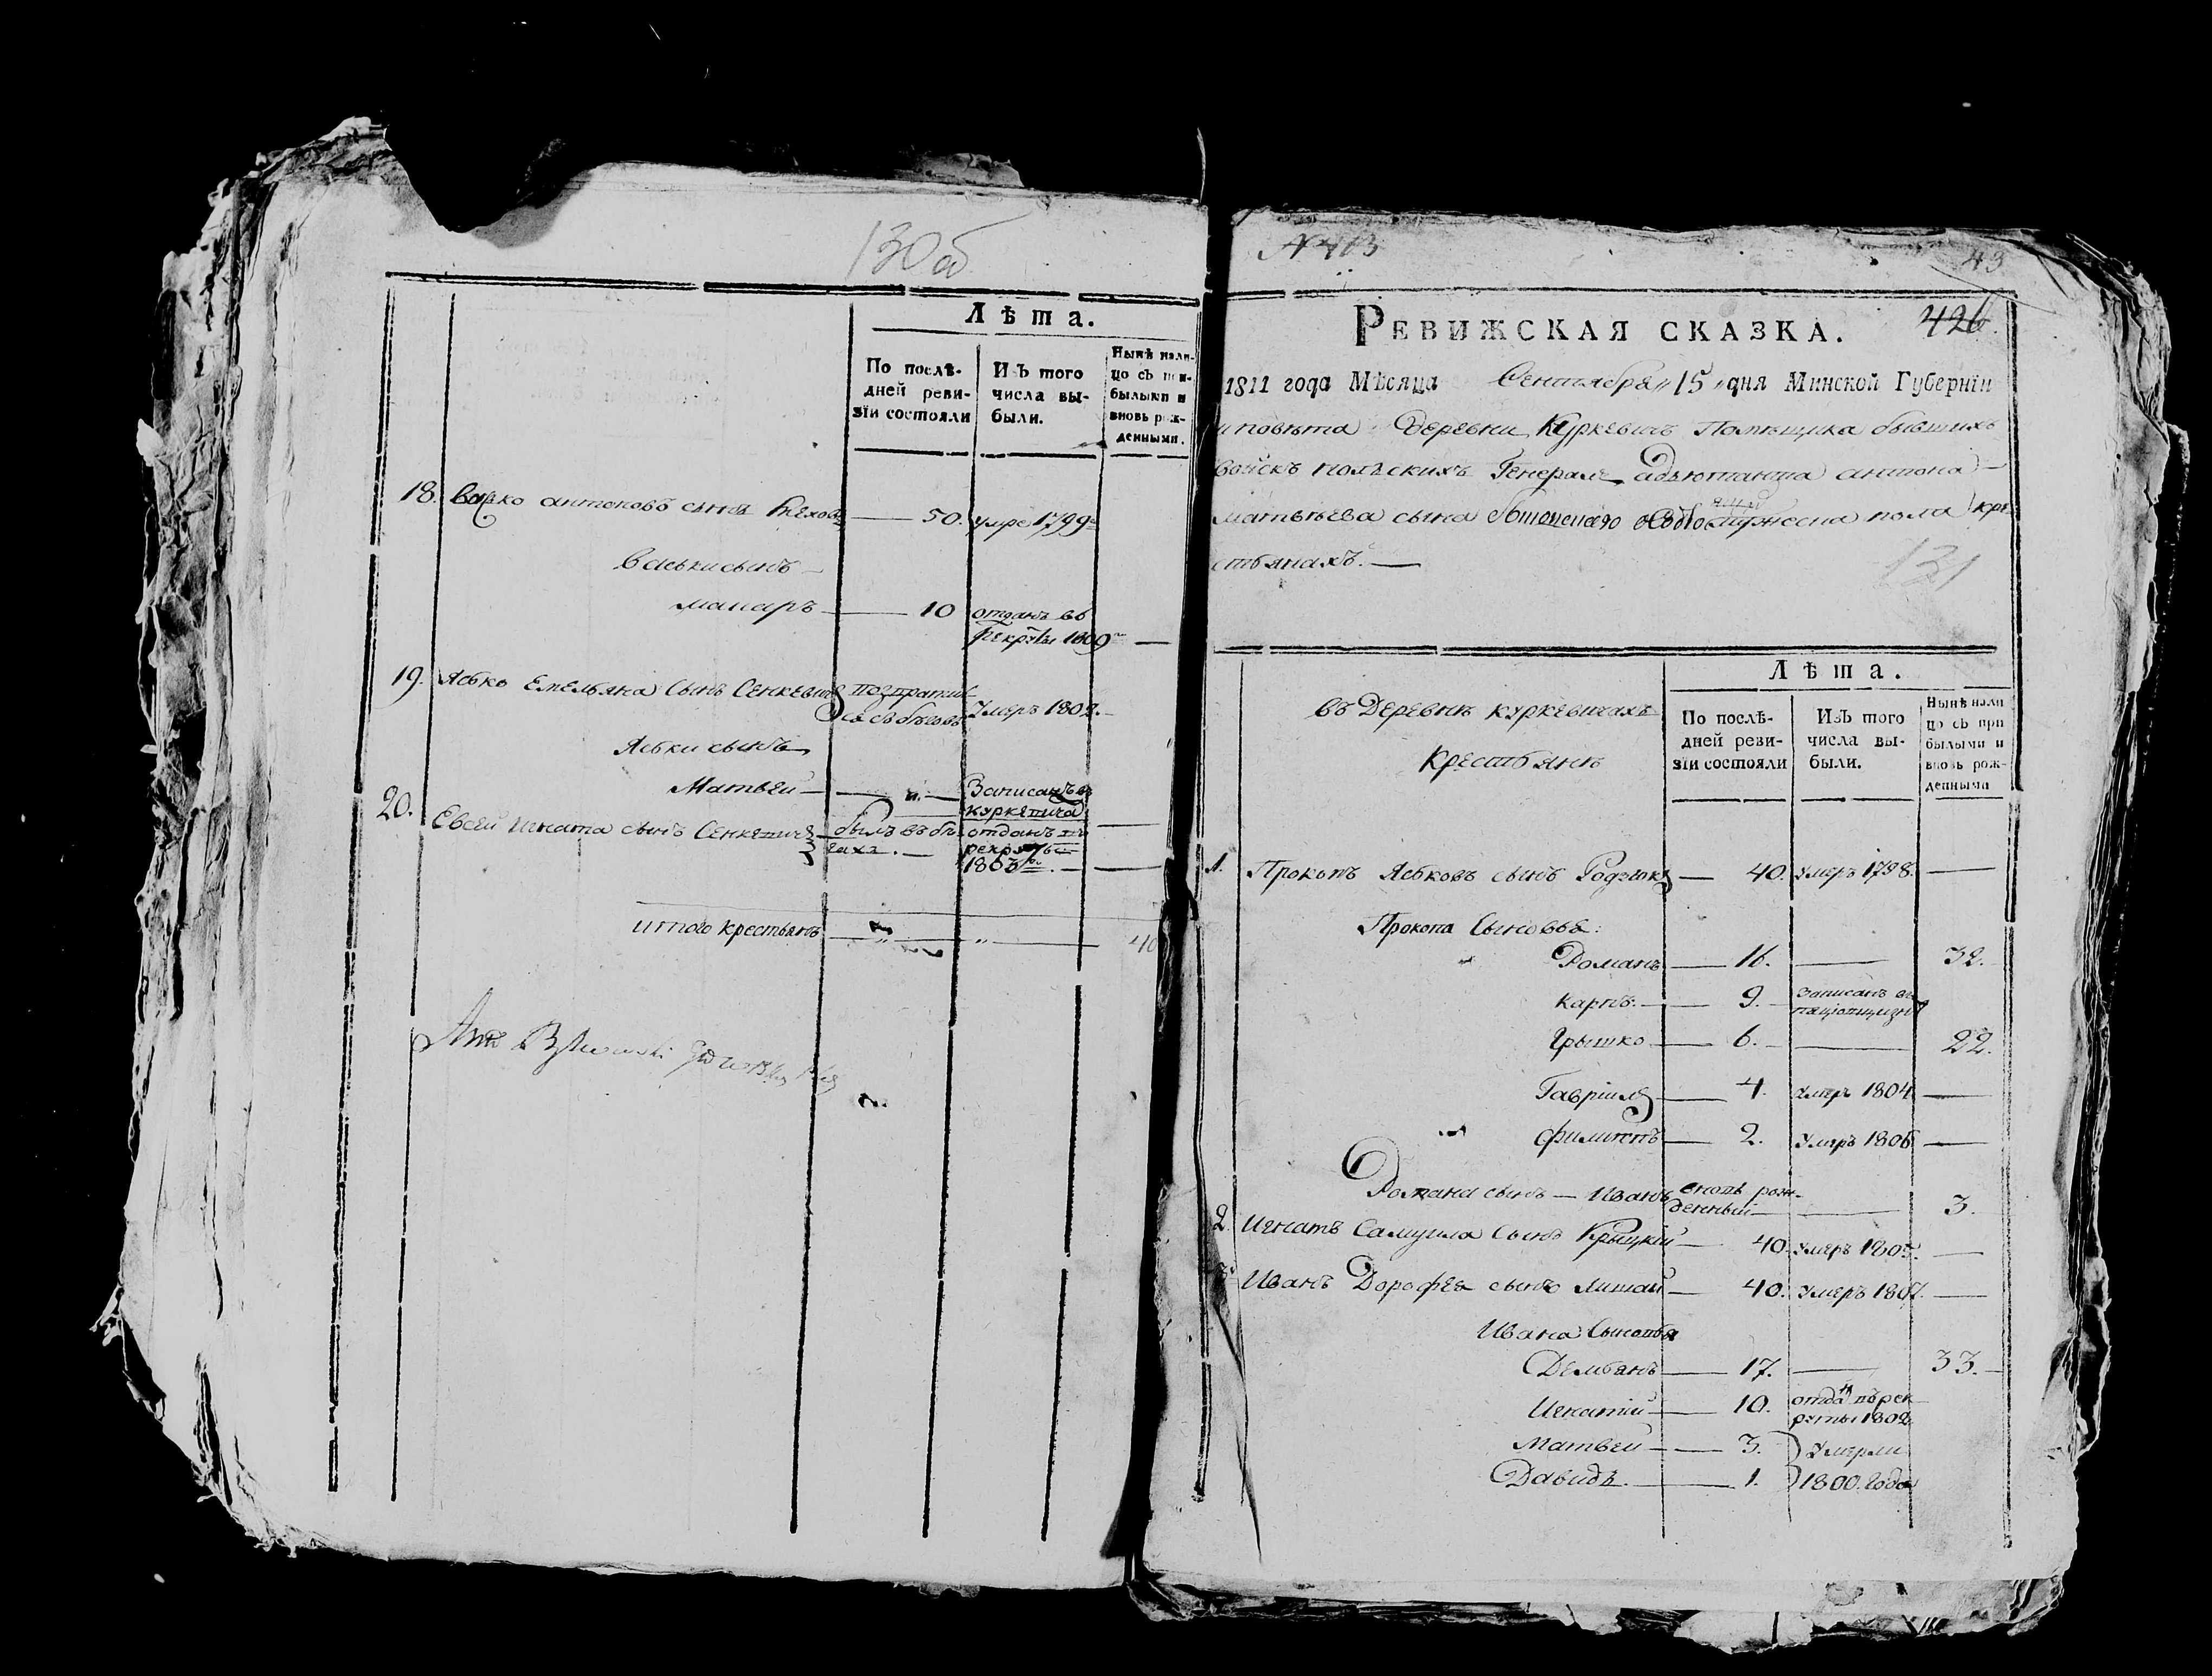 130об
Лѣта.
По послѣ-
дней реви-
зіи состояли
ИзЪ того
числа вы-
были.
Нынѣ нали-
цо съ при-
былыми и
вновь рож-
денными.
18. Васко антоновъ сынъ — 50. умре 1799
Васьки сынъ —
макаръ — 10 отданъ въ
рекруты 1809 —
19. Ясько Емельяна Сынъ Сенкевичъ Умеръ 1802. —
Яськи сынъ
Матвей — „ — Записанъ въ
куркевича
20. Евсей Игната сынъ Сенкевичъ — былъ въ бѣ- отданъ въ —
гахъ. — рекруты
1803 —
итого крестьянъ — „ — „ — 40
N 413
43
426.
Ревижская сказка.
1811 года Мѣсяца Сентября „15„ дня Минской Губерніи
и повѣта Деревни Куркевичъ Помѣщика бывшихъ
войскъ польскихъ Генералъ адъютанта антона
матвѣева сына о мужеска пола кре-
стьянахъ. —
131
въ Деревнѣ куркевичахъ
Крестьянъ
Лѣта.
По послѣ-
дней реви-
зіи состояли
ИзЪ того
числа вы-
были.
Нынѣ нали
цо съ при
былыми и
вновь рож-
денными
1. Прокопъ Яськовъ сынъ Родзюкъ — 40. Умеръ 1798. —
Прокопа Сыновья:
Романъ — 16. — 32.
Карпъ. — 9. — записанъ въ
Грышко — 6. — 22.
Гавріилъ — 4. Умеръ 1804 —
Филипъ — 2. Умеръ 1806 —
Романа сынъ — Иванъ вновь рож-
денный — 3.
2. Игнатъ Самуила Сынъ Крыцкій — 40. Умеръ 1805. —
3. Иванъ Дорофея сынъ Лишай — 40. Умеръ 1807. —
Ивана Сыновья
Демьянъ — 17. — 33. —
Игнатій — 10. отданъ въ рек
руты 1802
Матвей — 3. } Умерли
Давидъ. — 1. } 1800. Года